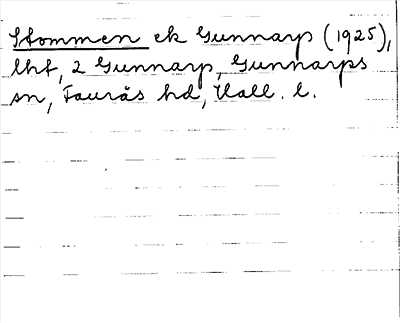 Stommen ek Gunnarp (1925),
lht, 2 Gunnarp, Gunnarps
sn, Faurås hd, Hall. l.